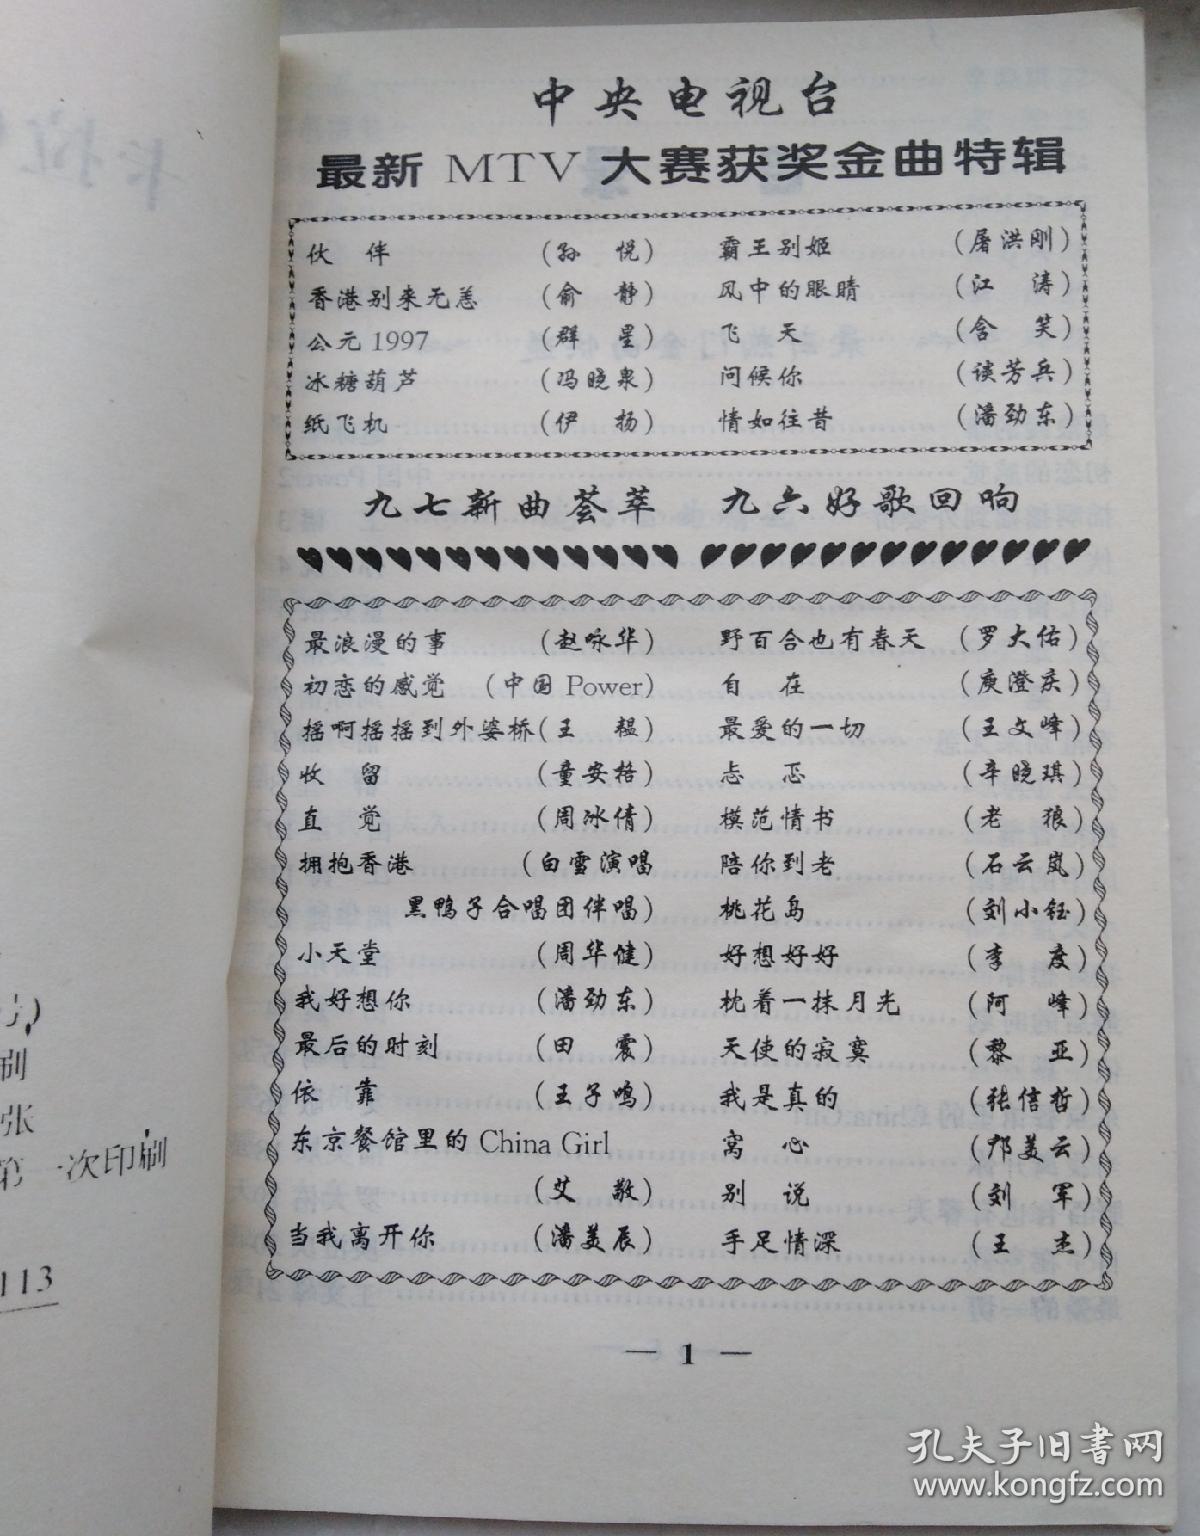 中央电视台
最新 MTV 大赛获奖金曲特辑
伙 伴 (孙 悦) 霸王别姬 (屠洪刚)
香港别来无恙 (俞 静) 风中的眼睛 (江 涛)
公元1997 (群 星) 飞 天 (含 笑)
冰糖葫芦 (冯晓泉) 问候你 (谈芳兵)
纸飞机 (伊 扬) 情如往昔 (潘劲东)
九七新曲荟萃 九六好歌回响
最浪漫的事 (赵咏华) 野百合也有春天 (罗大佑)
初恋的感觉 (中国 Power) 自 在 (庾澄庆)
摇啊摇摇到外婆桥 (王 韫) 最爱的一切 (王文峰)
收 留 (童安格) 忐 忑 (辛晓琪)
直 觉 (周冰倩) 模范情书 (老 狼)
拥抱香港 (白雪演唱 陪你到老 (石云岚)
黑鸭子合唱团伴唱) 桃花岛 (刘小钰)
小天堂 (周华健) 好想好好 (李 度)
我好想你 (潘劲东) 枕着一抹月光 (阿 峰)
最后的时刻 (田 震) 天使的寂寞 (黎 亚)
依 靠 (王子鸣) 我是真的 (张信哲)
东京餐馆里的 China Girl 窝 心 (邝美云)
(艾 敬) 别 说 (刘 军)
当我离开你 (潘美辰) 手足情深 (王 杰)
— 1 —
卡拉
刷
张
第一次印刷
113
孔夫子旧书网
www.kongfz.com